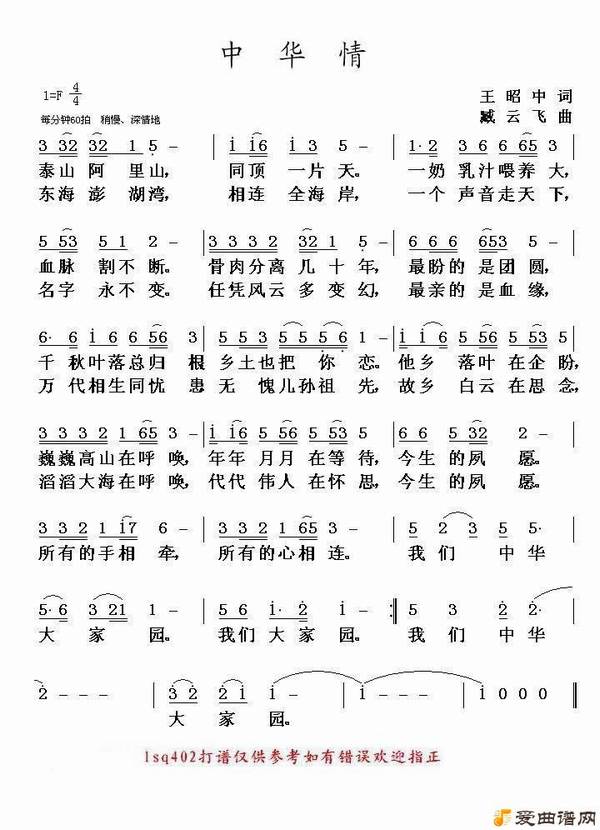 中 华 情
1=F 4/4
王 昭 中 词
每分钟60拍 稍慢、深情地
臧 云 飞 曲
3 32 32 12 | 5 - | i i6 53 | 5 - | 1·2 3 6 6 65 3 |
泰山 阿 里山， 同顶 一片 天。 一奶 乳汁喂养 大，
东海 澎 湖湾， 相连 全海 岸， 一个 声音走天 下，
5 53 5 1 2 - | 3 3 3 3 3 32 1 - | 6 6 6 653 5 |
血脉 割不 断。 骨肉分离 几 十 年， 最盼的 是团 圆，
名字 永不 变。 任凭风云 多 变 幻， 最亲的 是血 缘，
千 秋叶落总归 根 乡土也把 你 恋。他乡 落叶在企 盼，
万 代相生同忧 患 无 愧儿孙祖 先，故乡 白云在思 念，
巍巍高山在呼 唤，年年 月月 在等 待，今生 的夙 愿。
滔滔大海在呼 唤，代代 伟人 在怀 思，今生 的夙 愿。
3 3 3 2 1 i7 6 - | 3 3 2 1 65 3 - | 5 2 3 5 5· |
所有的手相 牵， 所有的心相 连。 我 们 中 华
大 家 园。 我们大家 园。 我 们 中 华
大 家 园。
lsq402打谱仅供参考如有错误欢迎指正
爱曲谱网